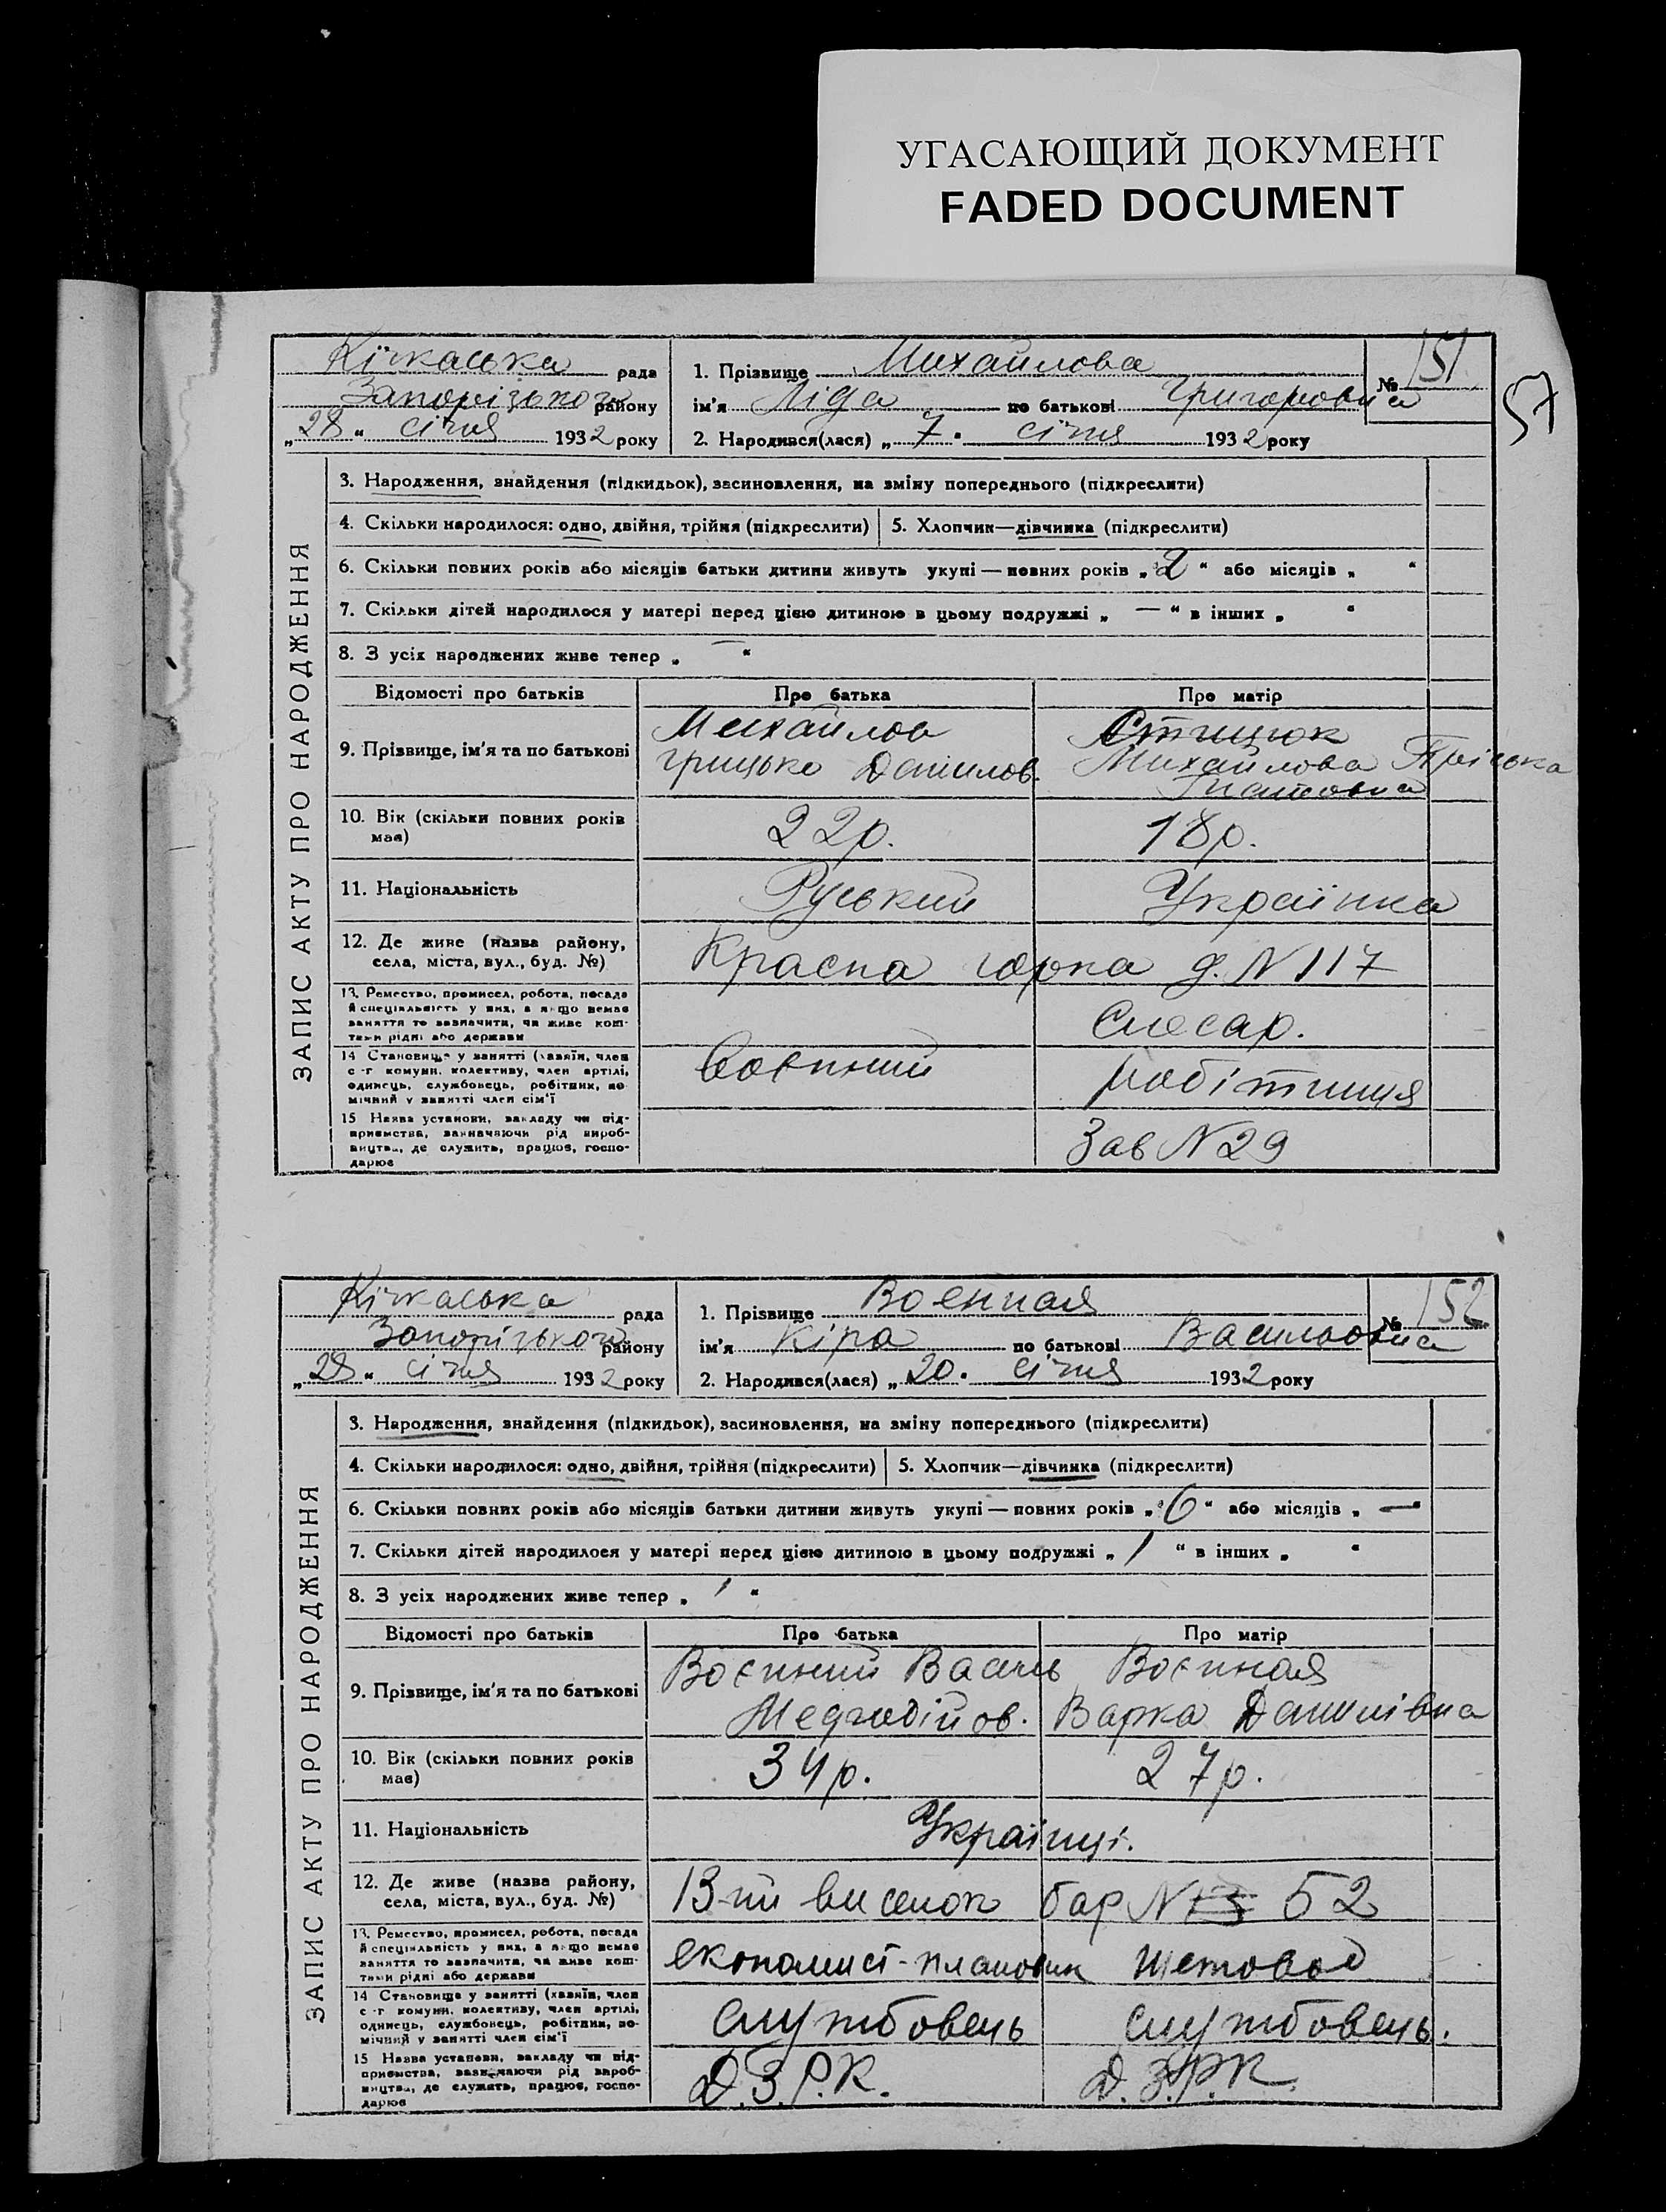 УГАСАЮЩИЙ ДОКУМЕНТ
FADED DOCUMENT
57
Кічкаська рада
Запорізького району
„28“ січня 1932 року
1. Прізвище Михайлова
№ 151
ім'я Ліда по батькові Григоровна
2. Народився(лася) „7“ січня 1932 року
ЗАПИС АКТУ ПРО НАРОДЖЕННЯ
3. Народження, знайдення (підкидьок), засиновлення, на зміну попереднього (підкреслити)
4. Скільки народилося: одно, двійня, трійня (підкреслити) 5. Хлопчик—дівчинка (підкреслити)
6. Скільки повних років або місяців батьки дитини живуть укупі — повних років „2“ або місяців „ “
7. Скільки дітей народилося у матері перед цією дитиною в цьому подружжі „—“ в інших „ “
8. З усіх народжених живе тепер „—“
Відомості про батьків Про батька Про матір
9. Прізвище, ім'я та по батькові
Михайлов
Грицько Данилов.
Михайлова Пріська
10. Вік (скільки повних років має) 22р. 18р.
11. Національність Руський Українка
12. Де живе (назва району, села, міста, вул., буд. №) Красна горка д. N 117
13. Ремество, промисел, робота, посада й спеціяльність у них, а якщо немає заняття то зазначити, чи живе коштами рідні або держави
Слюсар.
14 Становище у занятті (хазяїн, член с.-г комуни, колективу, член артілі, одинець, службовець, робітник, помічний у занятті член сім'ї
Воєнний робітниця
15 Назва установи, закладу чи підприємства, зазначаючи рід виробництва, де служить, працює, господарює
Зав N 29
Кічкаська рада
Запорізького району
„28“ січня 1932 року
1. Прізвище Военная
№ 152
ім'я Кіра по батькові Васильовна
2. Народився(лася) „20“ січня 1932 року
ЗАПИС АКТУ ПРО НАРОДЖЕННЯ
3. Народження, знайдення (підкидьок), засиновлення, на зміну попереднього (підкреслити)
4. Скільки народилося: одно, двійня, трійня (підкреслити) 5. Хлопчик—дівчинка (підкреслити)
6. Скільки повних років або місяців батьки дитини живуть укупі — повних років „6“ або місяців „—“
7. Скільки дітей народилося у матері перед цією дитиною в цьому подружжі „1“ в інших „ “
8. З усіх народжених живе тепер „1“
Відомості про батьків Про батька Про матір
9. Прізвище, ім'я та по батькові
Воєнний Василь Воєнная
Варка Данилівна
10. Вік (скільки повних років має) 34р. 27р.
11. Національність Українці.
12. Де живе (назва району, села, міста, вул., буд. №) 13-ти виселок бар N 52
13. Ремество, промисел, робота, посада й спеціяльність у них, а якщо немає заняття то зазначити, чи живе коштами рідні або держави
економист-плановик щетовод
14 Становище у занятті (хазяїн, член с.-г комуни, колективу, член артілі, одинець, службовець, робітник, помічний у занятті член сім'ї
службовець службовець.
15 Назва установи, закладу чи підприємства, зазначаючи рід виробництва, де служить, працює, господарює
Д.З.Р.К. Д.З.Р.К.